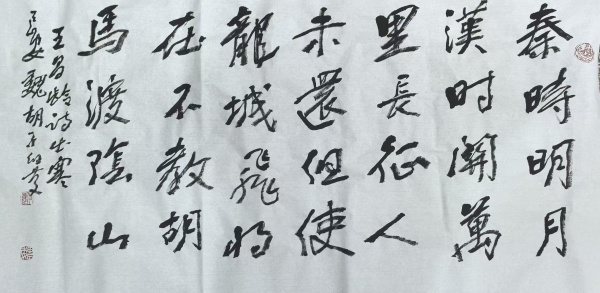 秦時明月
漢时關萬
里長征人
未還但使
龍城飛将
在不教胡
馬渡陰山
王昌齡詩出塞
魏胡